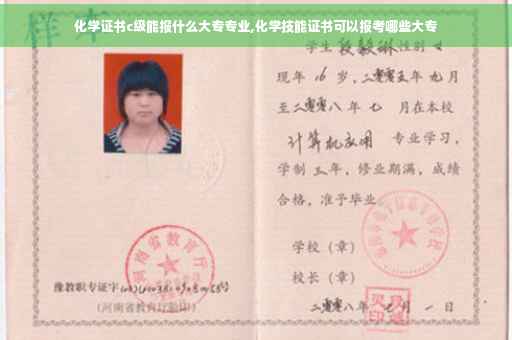 化学证书c级能报什么大专专业,化学技能证书可以报考哪些大专
样本
学生 段毅琳 性别 女
现年 16 岁，二零零五年 九月
至二零零八年 七 月在本校
计算机应用 专业学习，
学制 三年，修业期满，成绩
合格，准予毕业
学校（章）
校长（章）
二零零八年 月 一 日
河南省教育厅
豫教职专证字
（河南省教育厅验印）